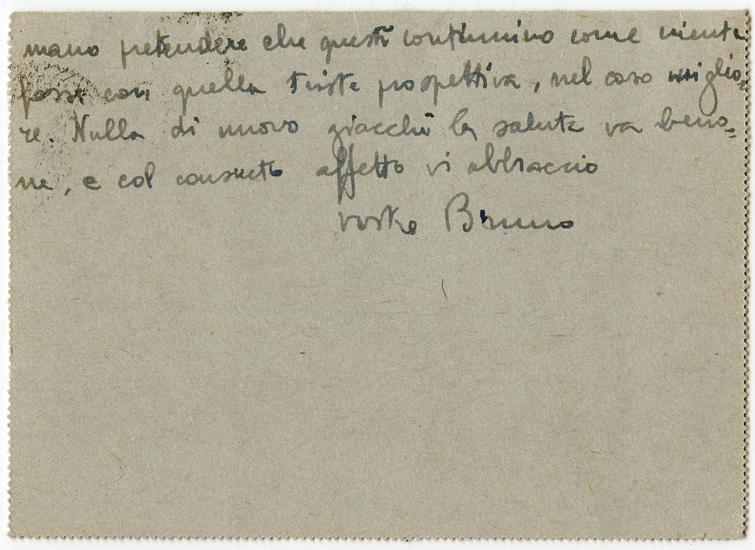 mano pretendere che questi continuino come niente
fosse con quella triste prospettiva, nel caso miglio-
re. Nulla di nuovo giacchè la salute va beno-
ne, e col consueto affetto vi abbraccio
vostro Bruno